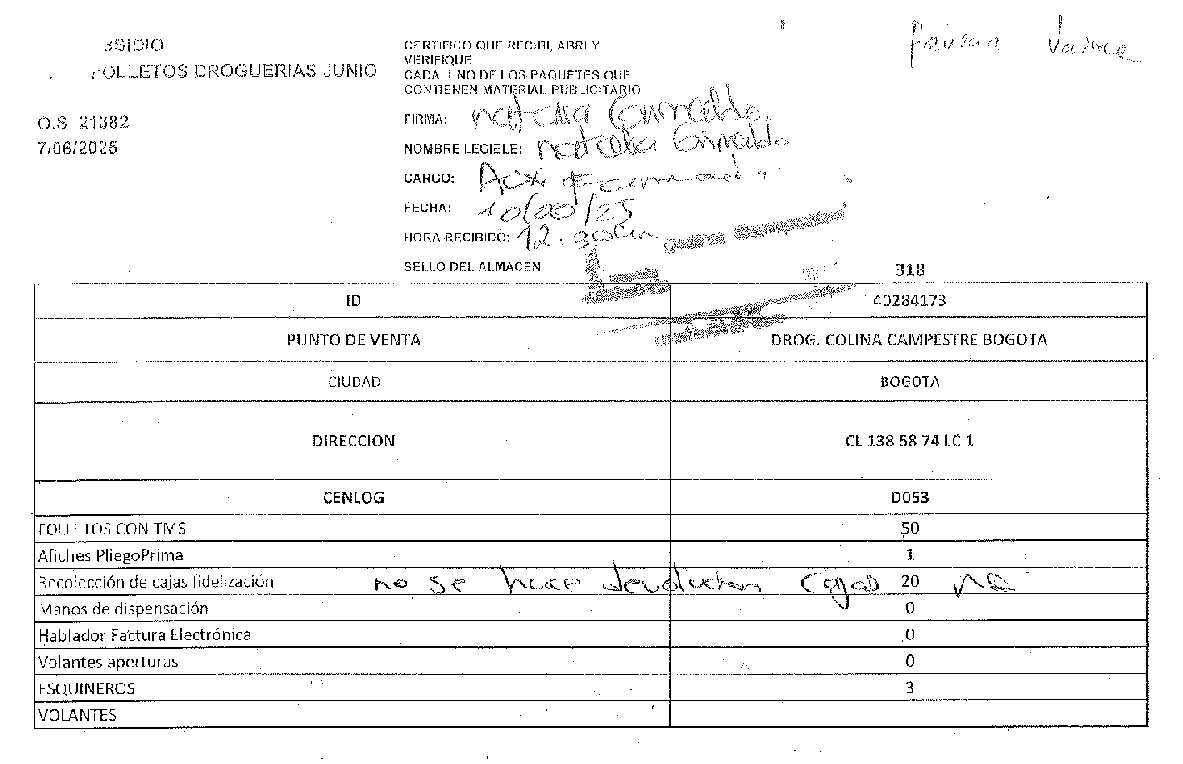 FOLLETOS DROGUERIAS JUNIO
O.S 21382
7/06/2025
CERTIFICO QUE RECIBI, ABRI Y
VERIFIQUE
CADA UNO DE LOS PAQUETES QUE
CONTIENEN MATERIAL PUBLICITARIO
FIRMA: natalia Grimaldo
NOMBRE LEGIBLE: natalia Grimaldo
CARGO: Aux
FECHA:
HORA RECIBIDO: 12:
SELLO DEL ALMACEN
318
ID 40284173
PUNTO DE VENTA DROG. COLINA CAMPESTRE BOGOTA
CIUDAD BOGOTA
DIRECCION CL 138 58 74 LC 1
CENLOG D053
FOLLETOS CON TMS 50
Afiches PliegoPrima 1
Recolección de cajas fidelización no se hace devolucion cajas 20
Manos de dispensación 0
Hablador Factura Electrónica 0
Volantes aperturas 0
ESQUINEROS 3
VOLANTES